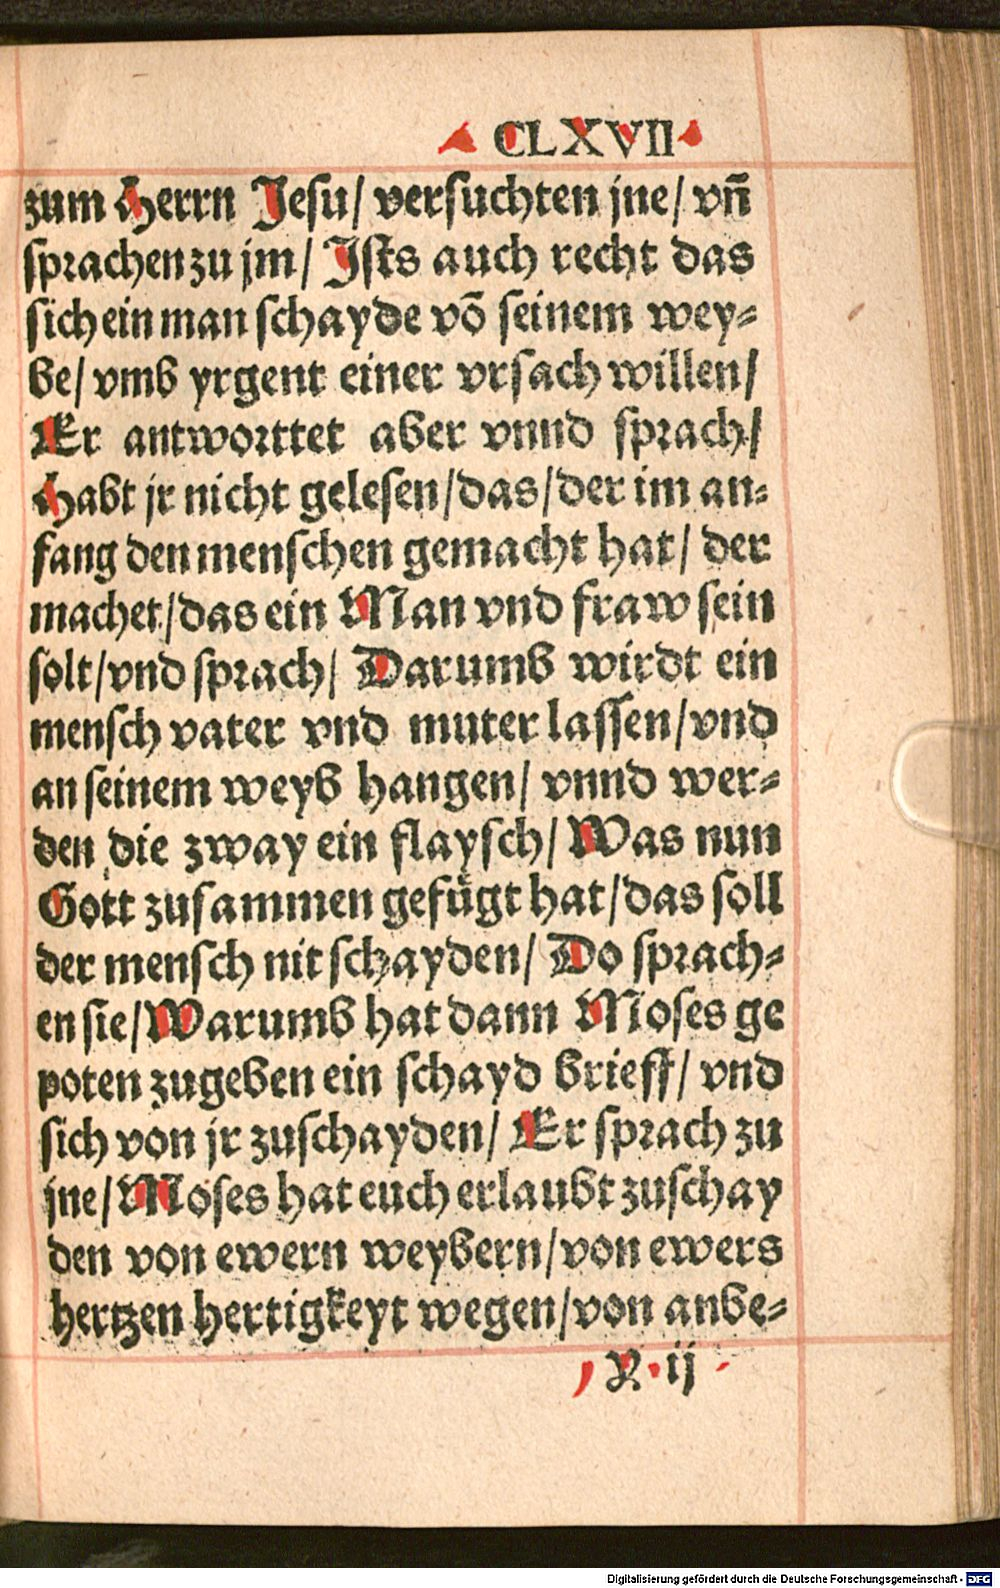 CLXVII
zum Herrn Jesu/ versuchten jne/ vñ
sprachen zu jm/ Jsts auch recht das
sich ein man schayde võ seinem wey-
be/ vmb yrgent einer vrsach willen/
Er antworttet aber vnnd sprach/
Habt jr nicht gelesen/das/der im an-
fang den menschen gemacht hat/ der
machet/das ein Man vnd fraw sein
solt/vnd sprach/ Darumb wirdt ein
mensch vater vnd muter lassen/vnd
an seinem weyb hangen/ vnnd wer-
den die zway ein flaysch/ Was nun
Gott zusammen gefügt hat/das soll
der mensch nit schayden/ Do sprach-
en sie/Warumb hat dann Moses ge
poten zugeben ein schayd brieff/ vnd
sich von jr zuschayden/ Er sprach zu
jne/Moses hat euch erlaubt zuschay
den von ewern weybern/von ewers
hertzen hertigkeyt wegen/von anbe-
Y ij
Digitalisierung gefördert durch die Deutsche Forschungsgemeinschaft - DFG